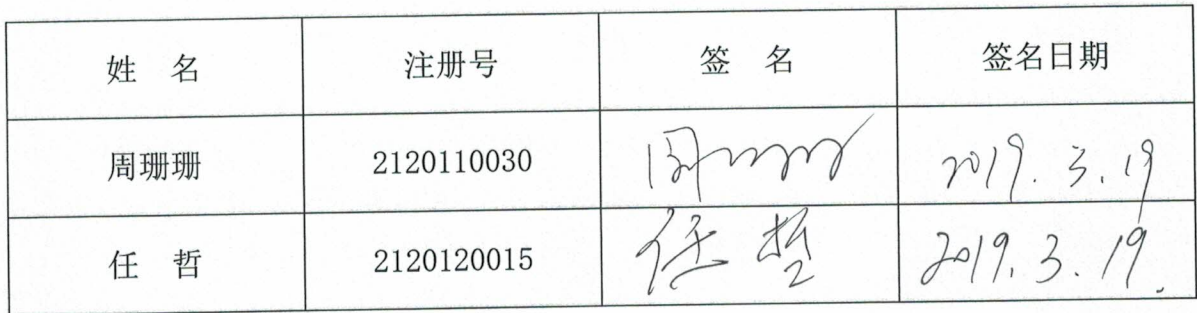 姓 名 注册号 签 名 签名日期
周珊珊 2120110030 周珊珊 2019.3.19
任 哲 2120120015 任哲 2019.3.19.